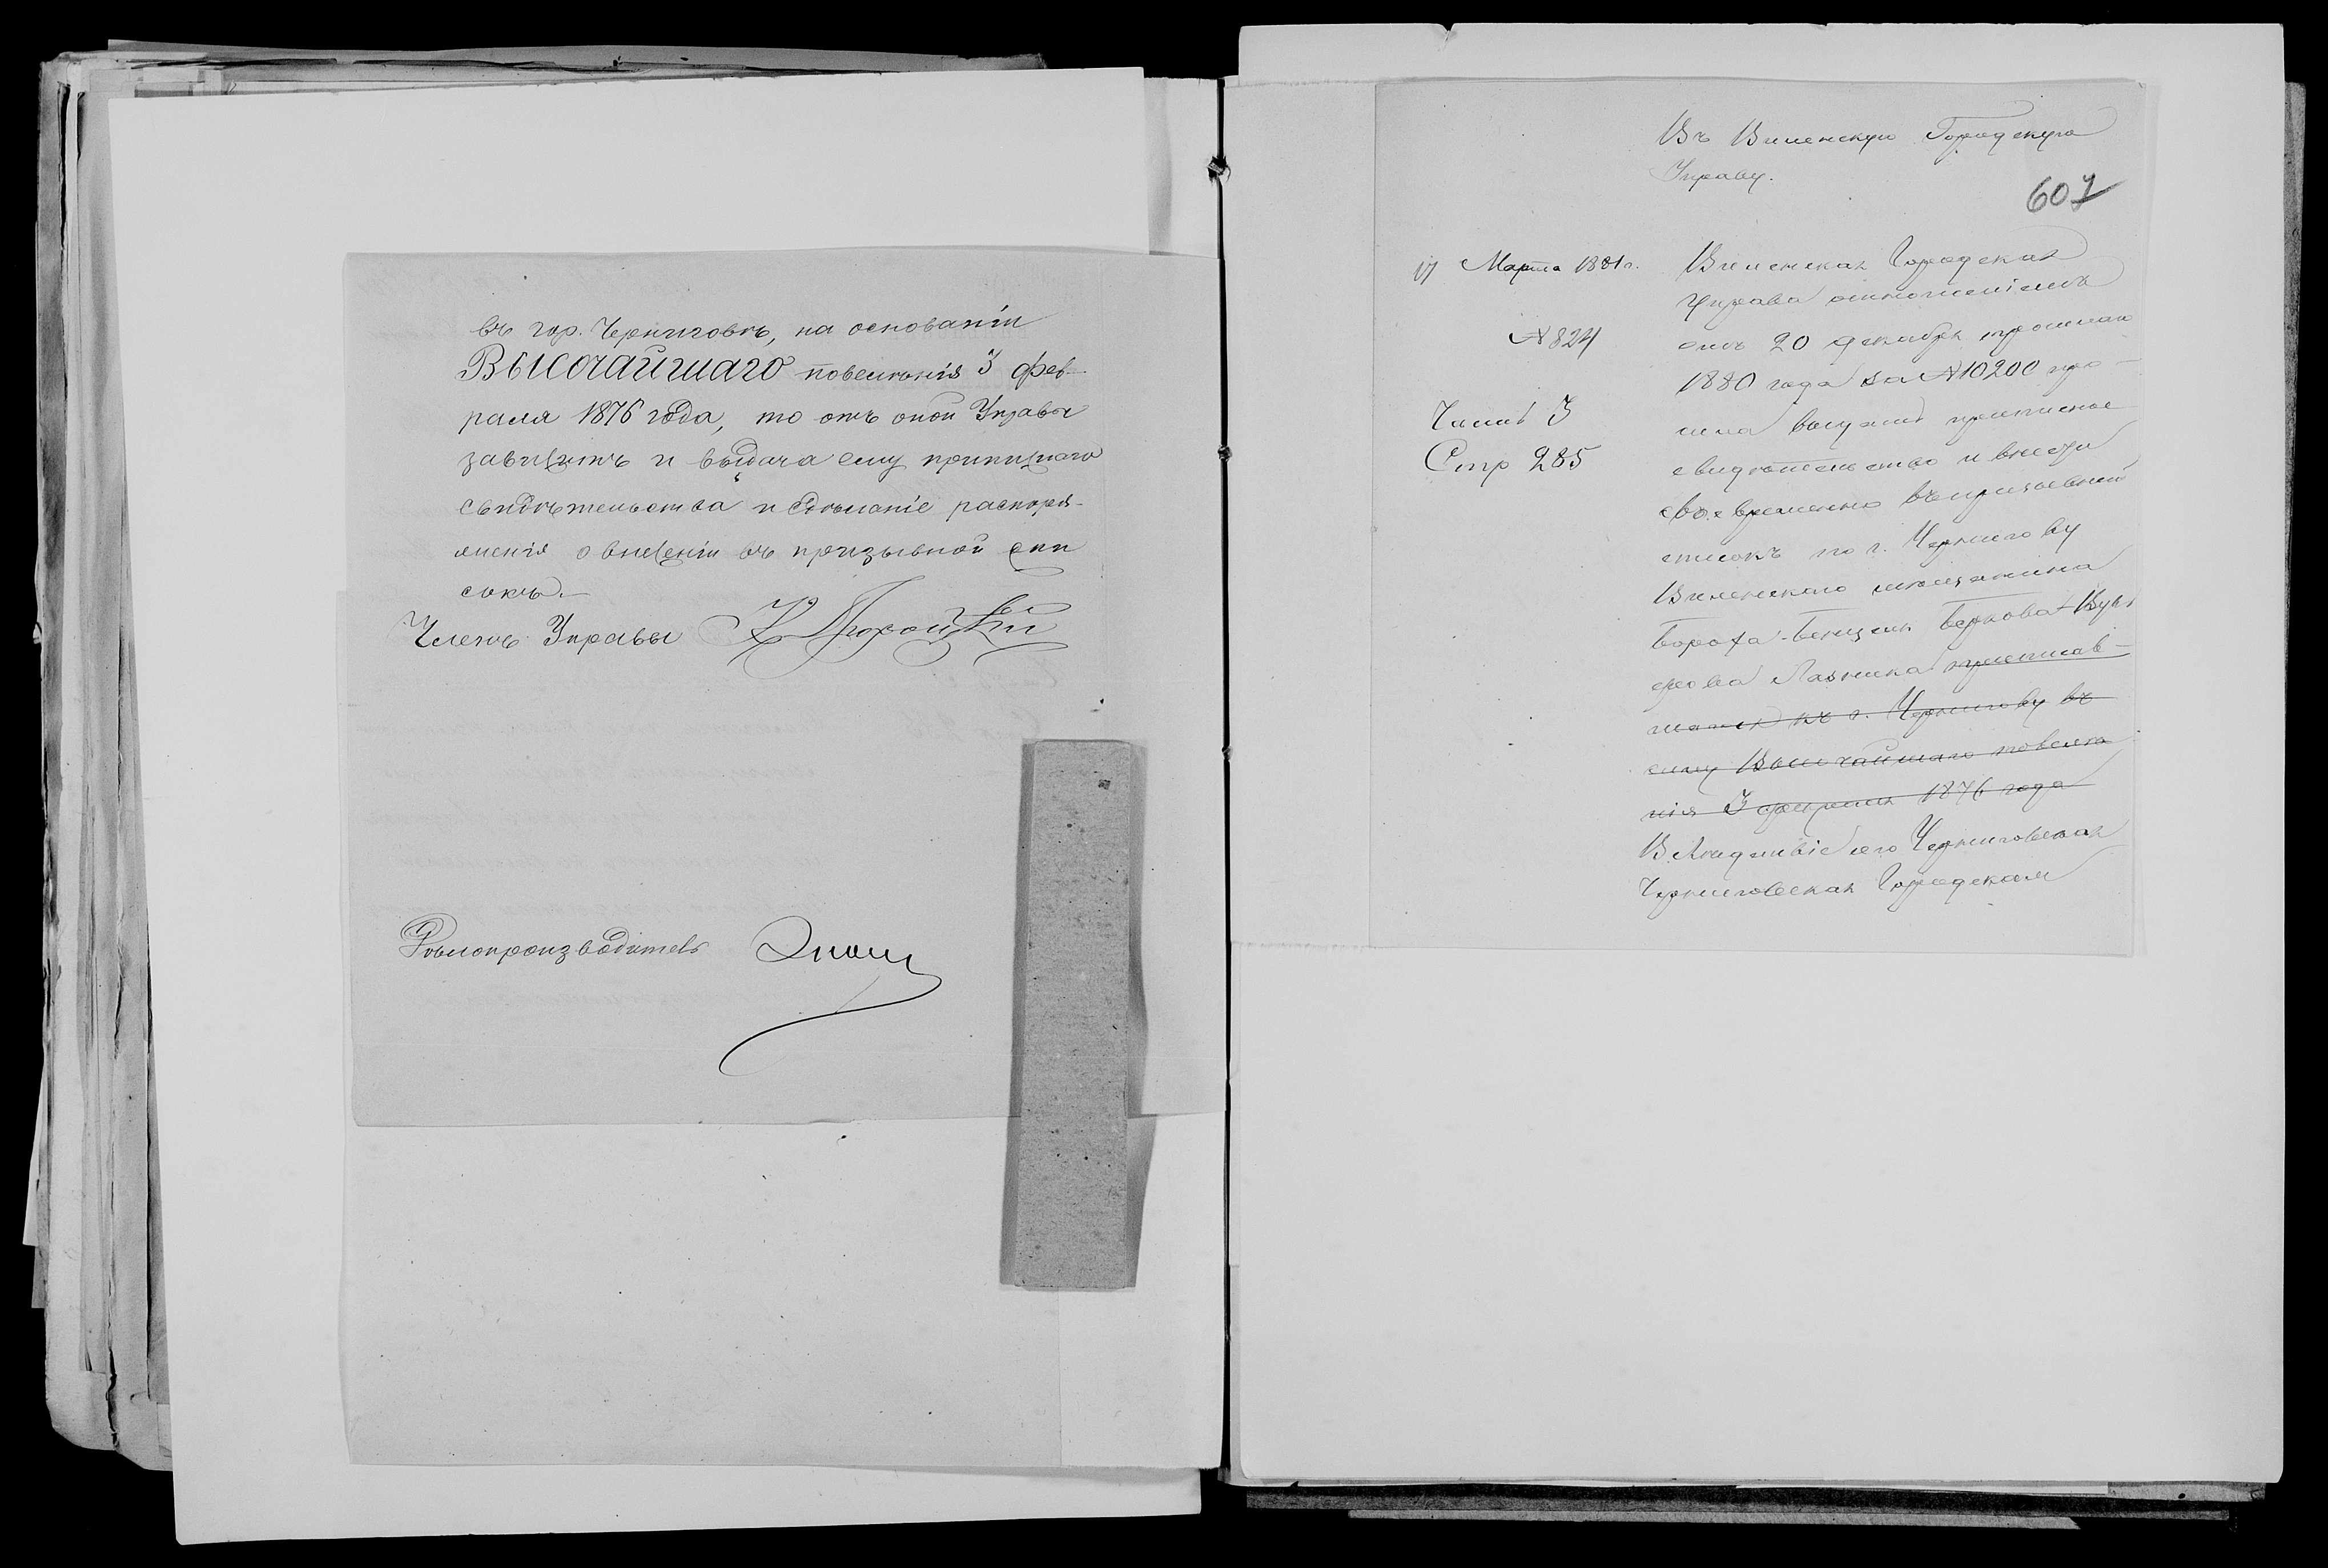 въ гор. Черниговѣ, на основаніи
Высочайшаго повелѣнія 3 фев-
раля 1876 года, то отъ оной Управы
зависитъ и выдача ему приписнаго
свидѣтельства и сдѣланіе распоря-
женія о внесеніи въ призывной спи
сокъ.
Членъ Управы
Дѣлопроизводитель
Въ Виленскую Городскую
Управу.
607
17 Марта 1881 г.
№ 824
Часть 3
Стр 285
Виленская Городская
Управа отношеніемъ
отъ 20 декабря прошлаго
1880 года за № 10200 про-
сила выдать приписное
свидѣтельство и внести
своевременно въ призывной
списокъ по г. Чернигову
Виленскаго мѣщанина
Бороха-Бенцеля Беркова Вуль
фова Лазника приписав-
шагося къ г. Чернигову въ
силу Высочайшаго повелѣ
нія 3 февраля 1876 года
Вслѣдствіе чего Черниговская
Черниговская Городская